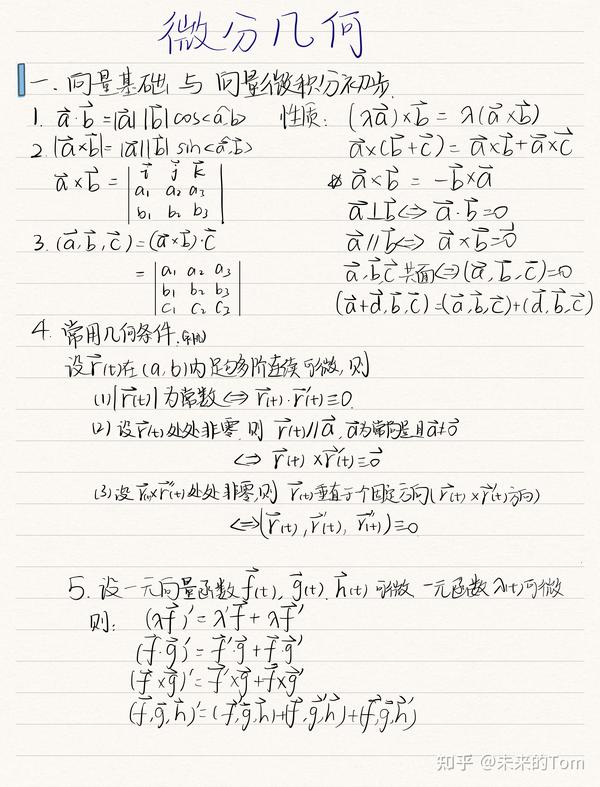 微分几何
一.向量基础 与 向量微积分初步.
1. a⃗·b⃗ = |a⃗| |b⃗| cos<a⃗,b⃗> 性质: (λa⃗)×b⃗ = λ(a⃗×b⃗)
2. |a⃗×b⃗| = |a⃗||b⃗| sin<a⃗,b⃗> a⃗×(b⃗+c⃗) = a⃗×b⃗+a⃗×c⃗
a⃗×b⃗ = | i⃗ j⃗ k⃗ | a⃗×b⃗ = -b⃗×a⃗
a₁ a₂ a₃
b₁ b₂ b₃ a⃗⊥b⃗ <=> a⃗·b⃗=0
3. (a⃗,b⃗,c⃗) = (a⃗×b⃗)·c⃗ a⃗//b⃗ <=> a⃗×b⃗=0⃗
= | a₁ a₂ a₃ | a⃗,b⃗,c⃗ 共面 <=> (a⃗,b⃗,c⃗)=0
b₁ b₂ b₃
c₁ c₂ c₃ (a⃗+d⃗,b⃗,c⃗) = (a⃗,b⃗,c⃗)+(d⃗,b⃗,c⃗)
4. 常用几何条件.
设r⃗(t)在(a,b)内足够多阶连续可微,则
(1) |r⃗(t)| 为常数 <=> r⃗(t)·r⃗'(t)≡0.
(2) 设r⃗(t)处处非零,则 r⃗(t)//a⃗, a⃗为常向量且a⃗≠0⃗
<=> r⃗(t)×r⃗'(t)≡0⃗
(3) 设r⃗(t)×r⃗'(t)处处非零,则 r⃗(t)垂直于个固定方向(r⃗(t)×r⃗'(t)方向)
<=> (r⃗(t), r⃗'(t), r⃗''(t))≡0
5. 设一元向量函数f⃗(t), g⃗(t), h⃗(t)可微 一元函数λ(t)可微
则: (λf⃗)' = λ'f⃗ + λf⃗'
(f⃗·g⃗)' = f⃗'·g⃗ + f⃗·g⃗'
(f⃗×g⃗)' = f⃗'×g⃗+f⃗×g⃗'
(f⃗,g⃗,h⃗)' = (f⃗',g⃗,h⃗)+(f⃗,g⃗',h⃗)+(f⃗,g⃗,h⃗')
知乎 @未来的Tom